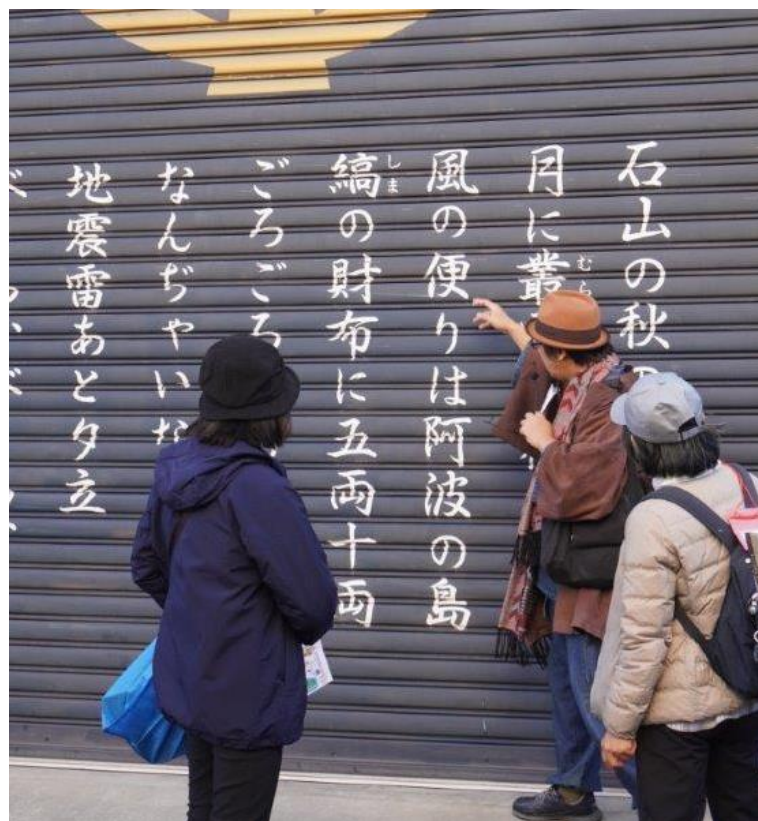 石山の秋の
むら
月に叢
風の便りは阿波の島
しま
縞の財布に五両十両
ごろごろ
なんぢゃいな
地震雷あと夕立